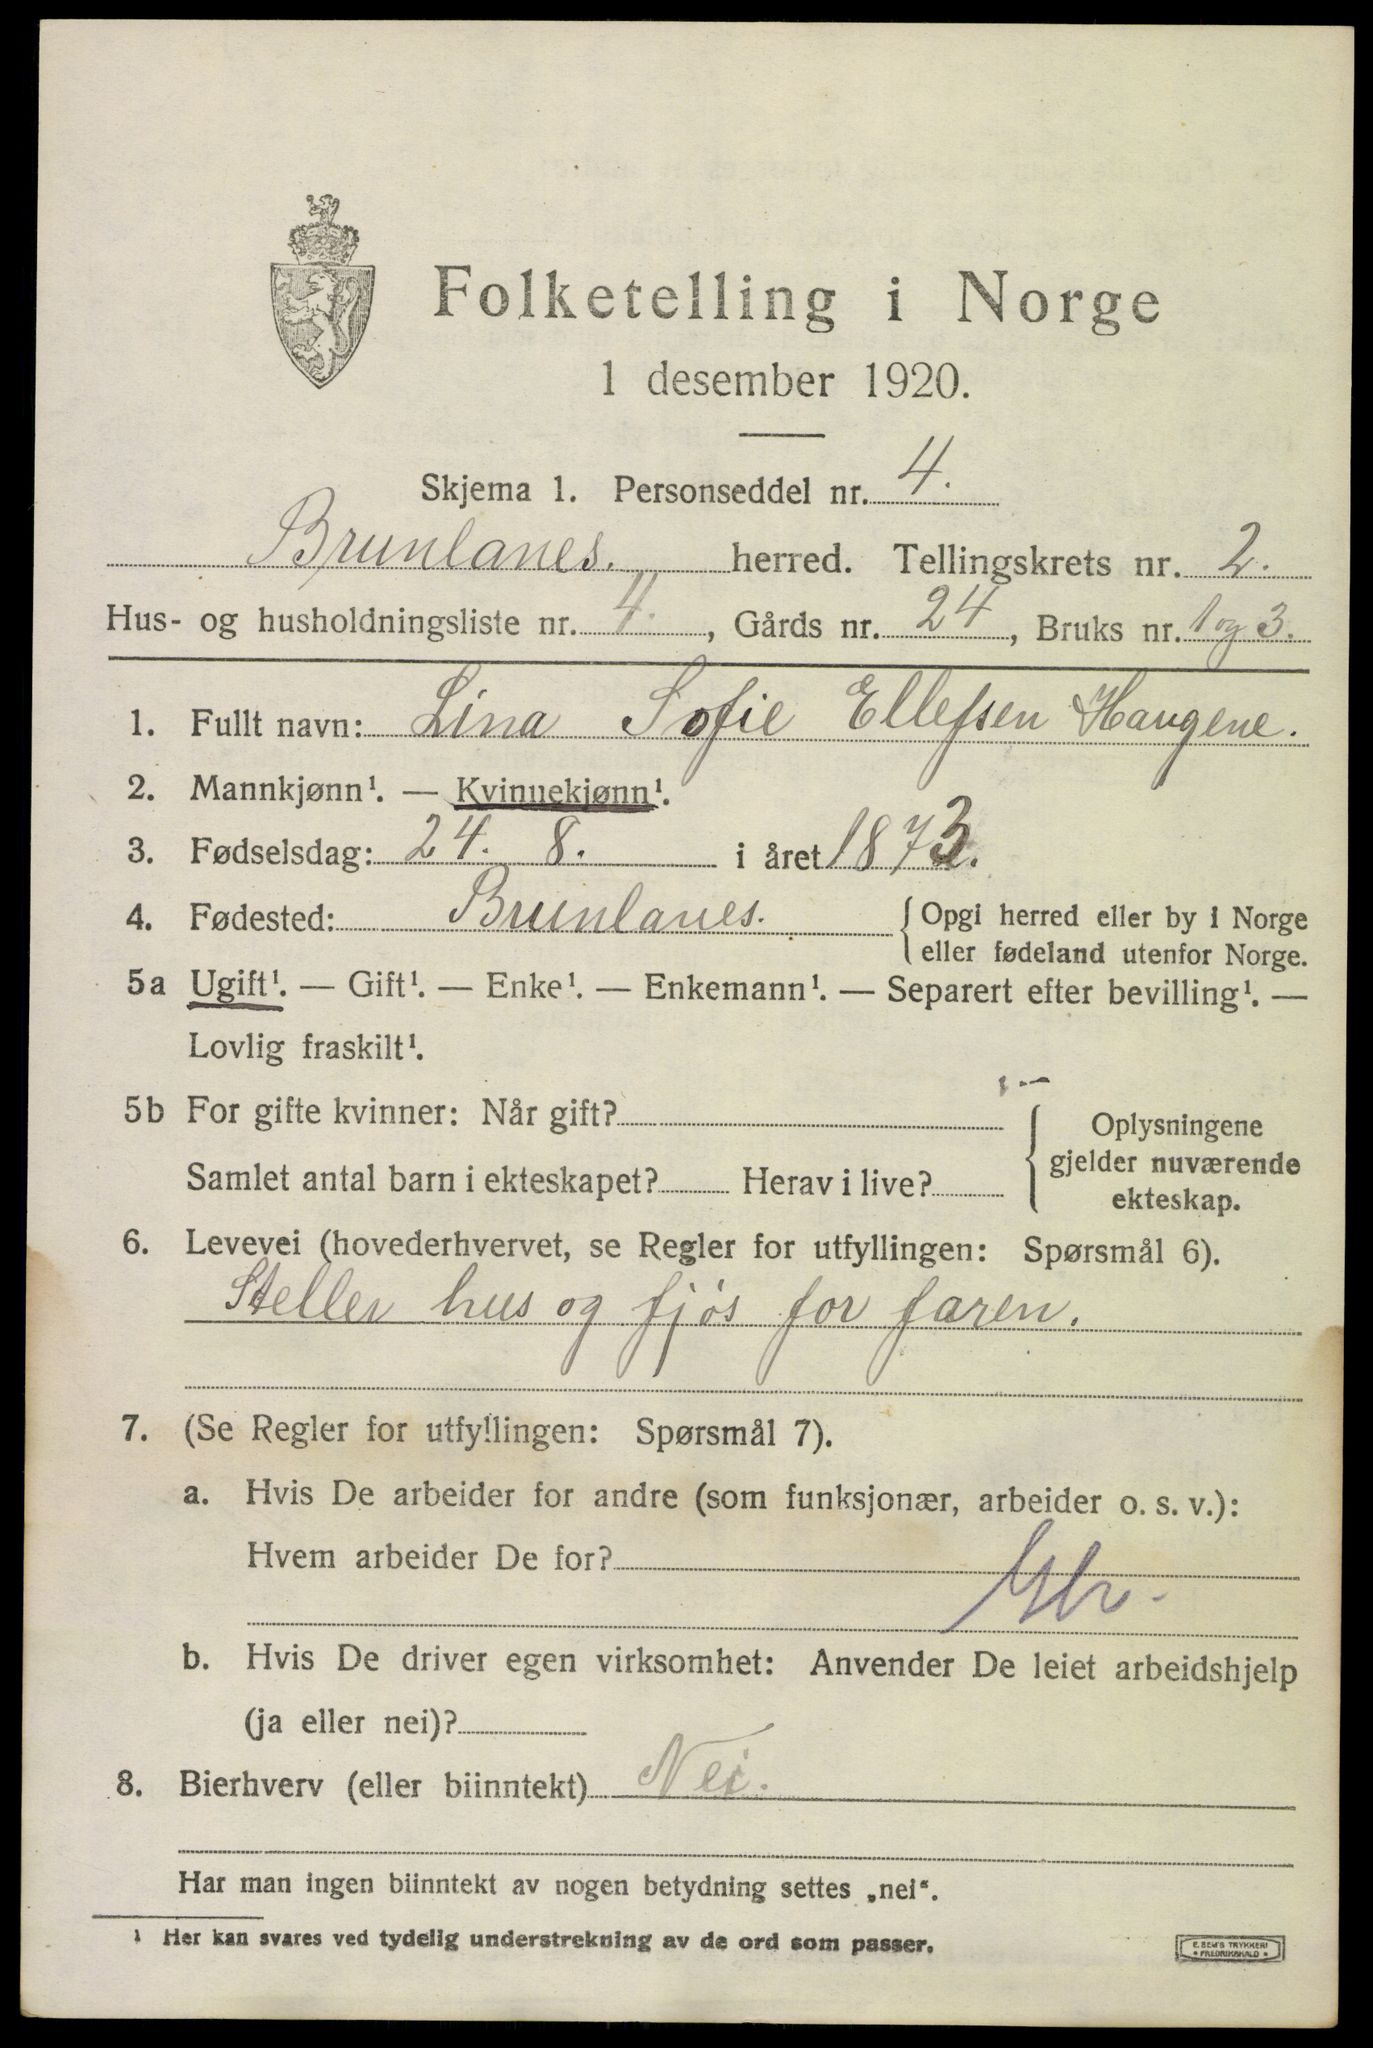 Folketelling i Norge
1 desember 1920.
Skjema 1. Personseddel nr. 4.
Brunlanes. herred. Tellingskrets nr. 2.
Hus- og husholdningsliste nr. 4., Gårds nr. 24, Bruks nr. 1 og 3.
1. Fullt navn: Lina Sofie Ellefsen Haugene.
2. Mannkjønn¹. — Kvinnekjønn¹.
3. Fødselsdag: 24. 8. i året 1873.
4. Fødested: Brunlanes. { Opgi herred eller by i Norge
eller fødeland utenfor Norge.
5a Ugift¹. — Gift¹. — Enke¹. — Enkemann¹. — Separert efter bevilling¹. —
Lovlig fraskilt¹.
5b For gifte kvinner: Når gift?
Samlet antal barn i ekteskapet? Herav i live?
Oplysningene
gjelder nuværende
ekteskap.
6. Levevei (hovederhvervet, se Regler for utfyllingen: Spørsmål 6).
Steller hus og fjøs for faren.
7. (Se Regler for utfyllingen: Spørsmål 7).
a. Hvis De arbeider for andre (som funksjonær, arbeider o. s. v.):
Hvem arbeider De for?
b. Hvis De driver egen virksomhet: Anvender De leiet arbeidshjelp
(ja eller nei)?
8. Bierhverv (eller biinntekt) Nei.
Har man ingen biinntekt av nogen betydning settes „nei“.
¹ Her kan svares ved tydelig understrekning av de ord som passer.
E. SEM'S TRYKKERI
• FREDRIKSHALD •